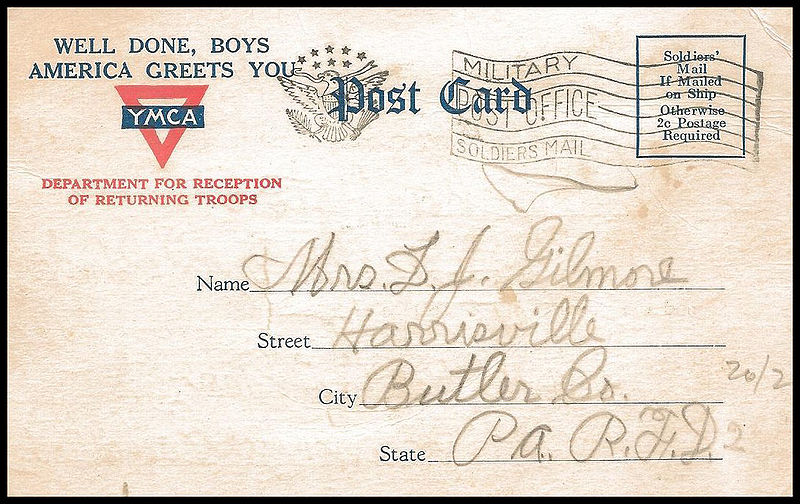 WELL DONE, BOYS
AMERICA GREETS YOU
YMCA
DEPARTMENT FOR RECEPTION
OF RETURNING TROOPS
Post Card
MILITARY
POST OFFICE
SOLDIERS MAIL
Soldiers'
Mail
If Mailed
on Ship
Otherwise
2c Postage
Required
Name Mrs. D. J. Gilmore
Street Harrisville
City Butler Co.
20/2
State Pa. R.F.D. 2